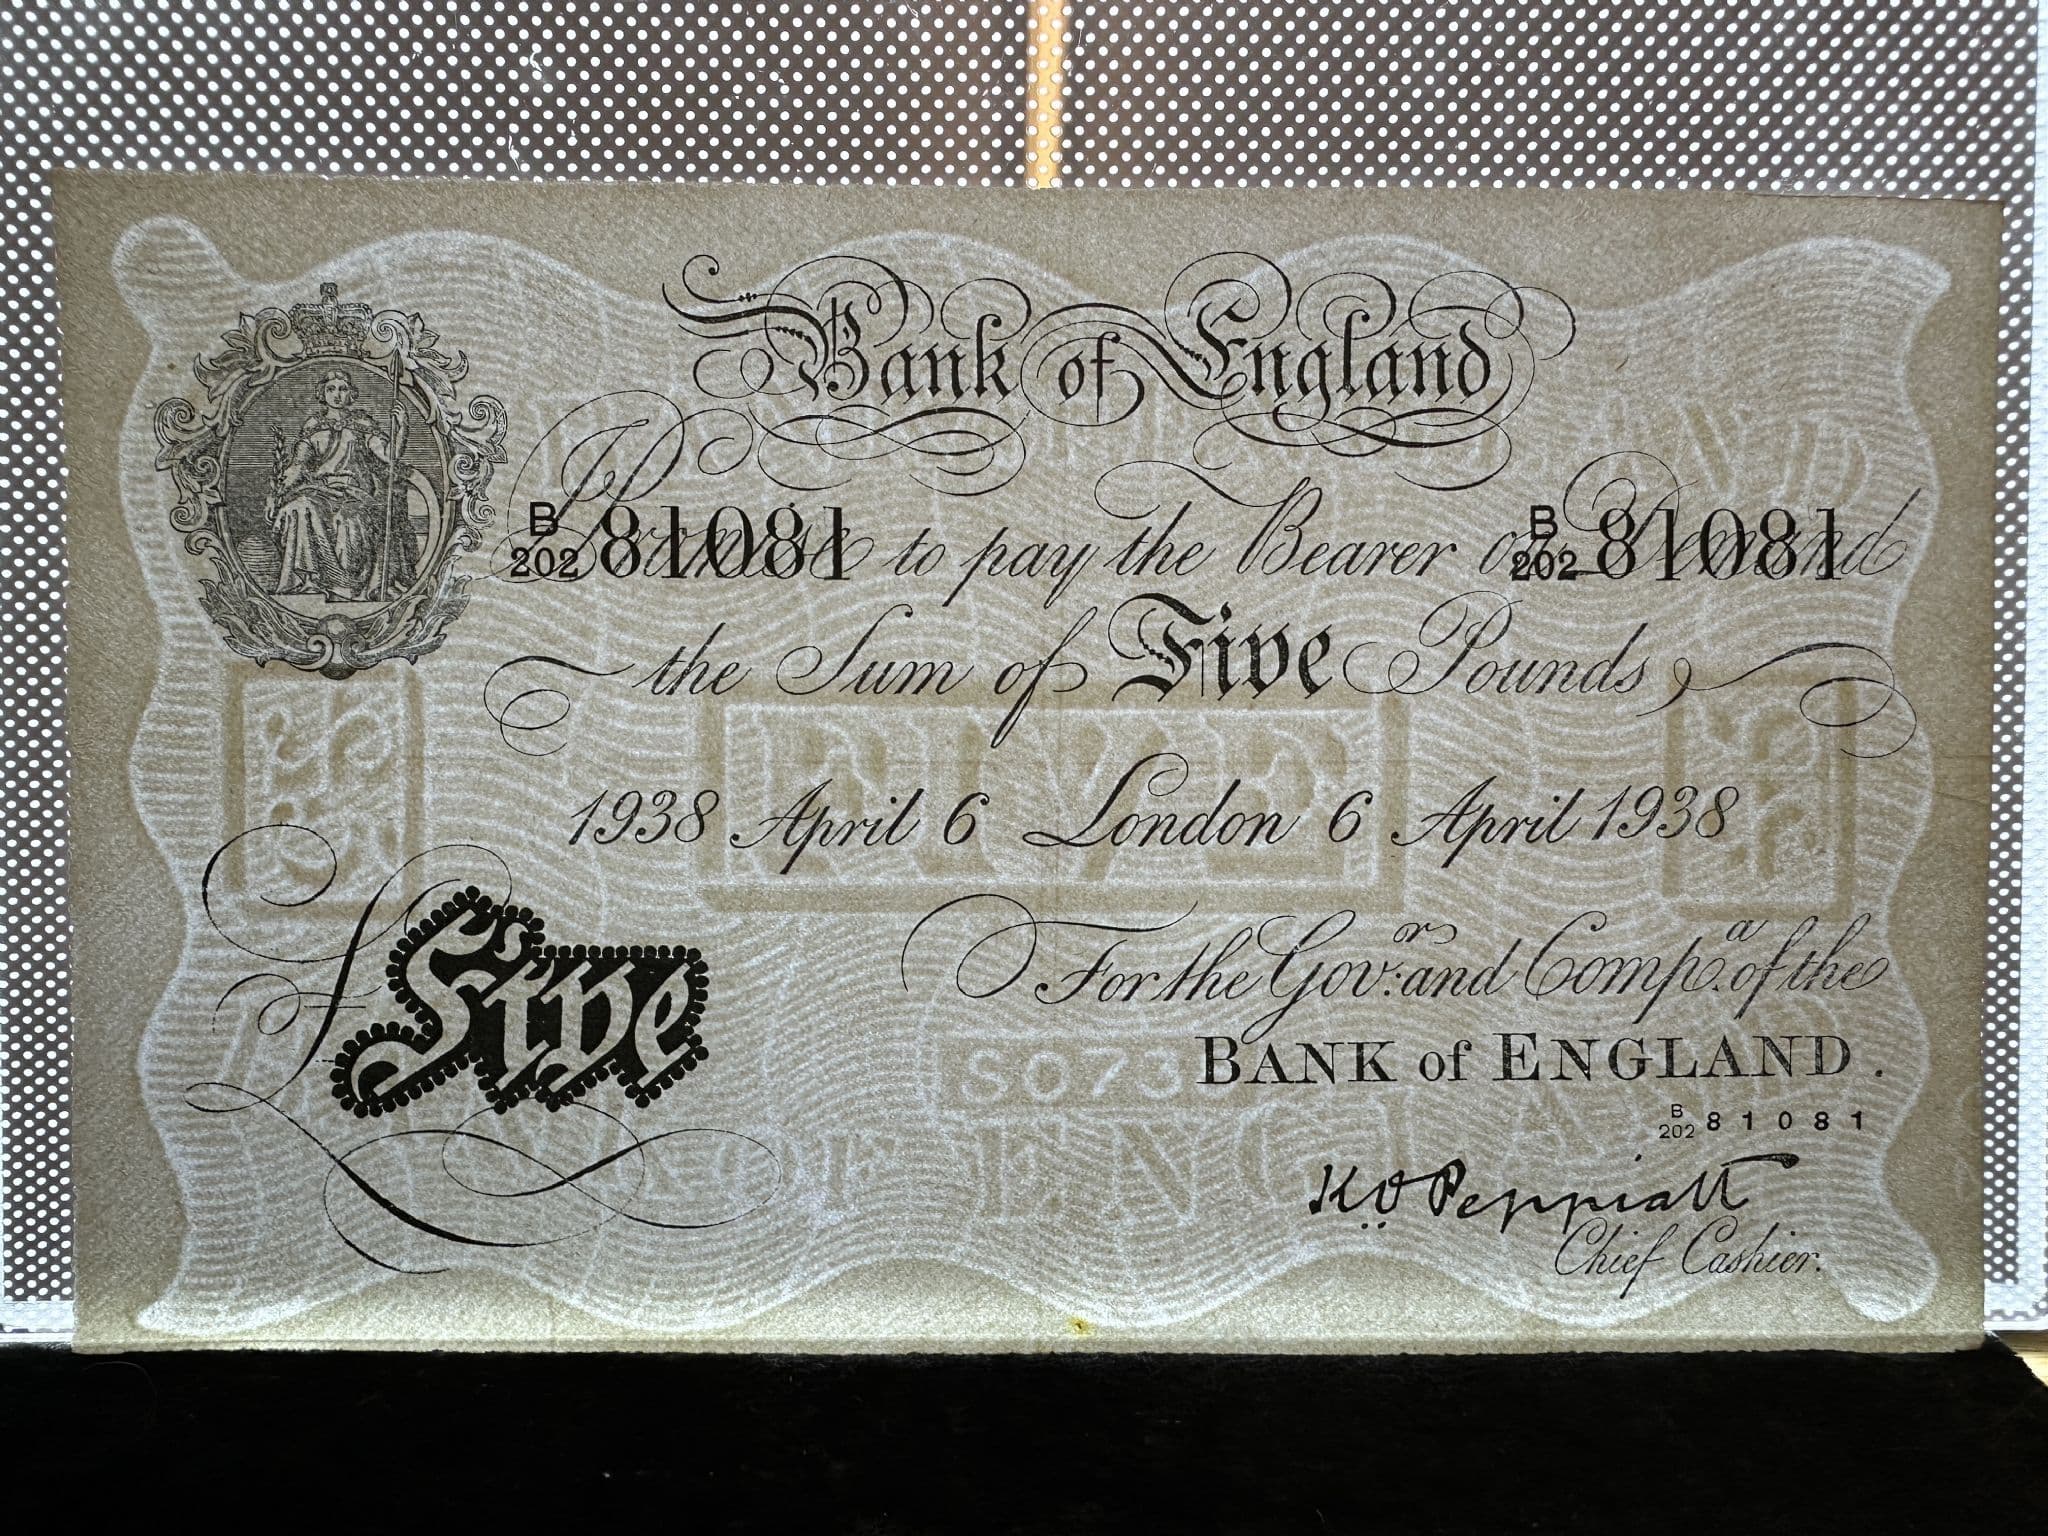 Bank of England
B
202 81081
Promise to pay the Bearer on Demand
B
202 81081
the Sum of Five Pounds
FIVE
1938 April 6 London 6 April 1938
£Five
For the Gov:r and Comp.a of the
S073
BANK of ENGLAND.
B
202 81081
BANK OF ENGLAND
K.O. Peppiatt
Chief Cashier.